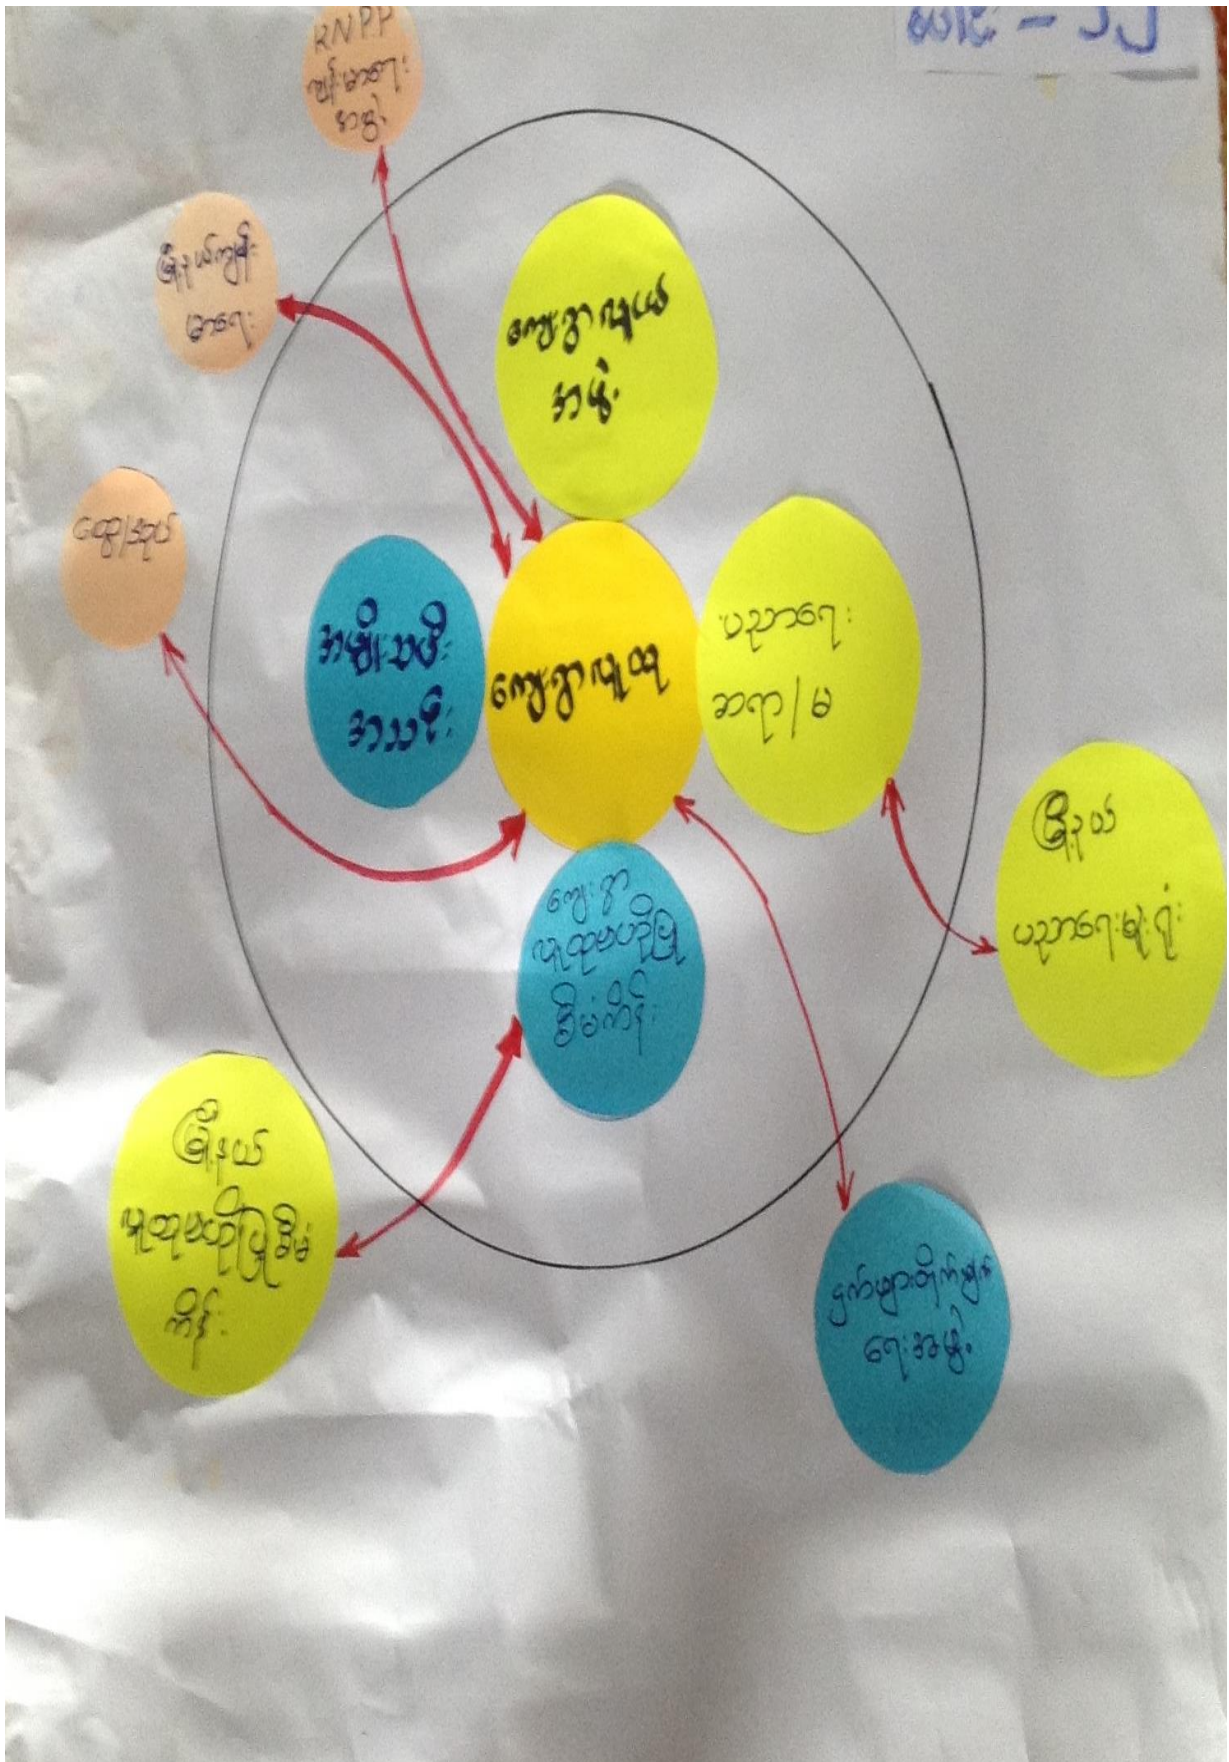 KNPP
ကျန်းမာရေး
အဖွဲ့
မြို့နယ်ကျန်း
မာရေး
ထွေ/အုပ်
ကျေးရွာလူငယ်
အဖွဲ့
အမျိုးသမီး
အသင်း
ကျေးရွာလူထု
ပညာရေး
ဆရာ/မ
မြို့နယ်
ပညာရေးမှူးရုံး
ကျေးရွာ
လူထုဗဟိုပြု
စီမံကိန်း
မြို့နယ်
လူထုဗဟိုပြုစီမံ
ကိန်း
ငှက်ဖျားတိုက်ဖျက်
ရေးအဖွဲ့